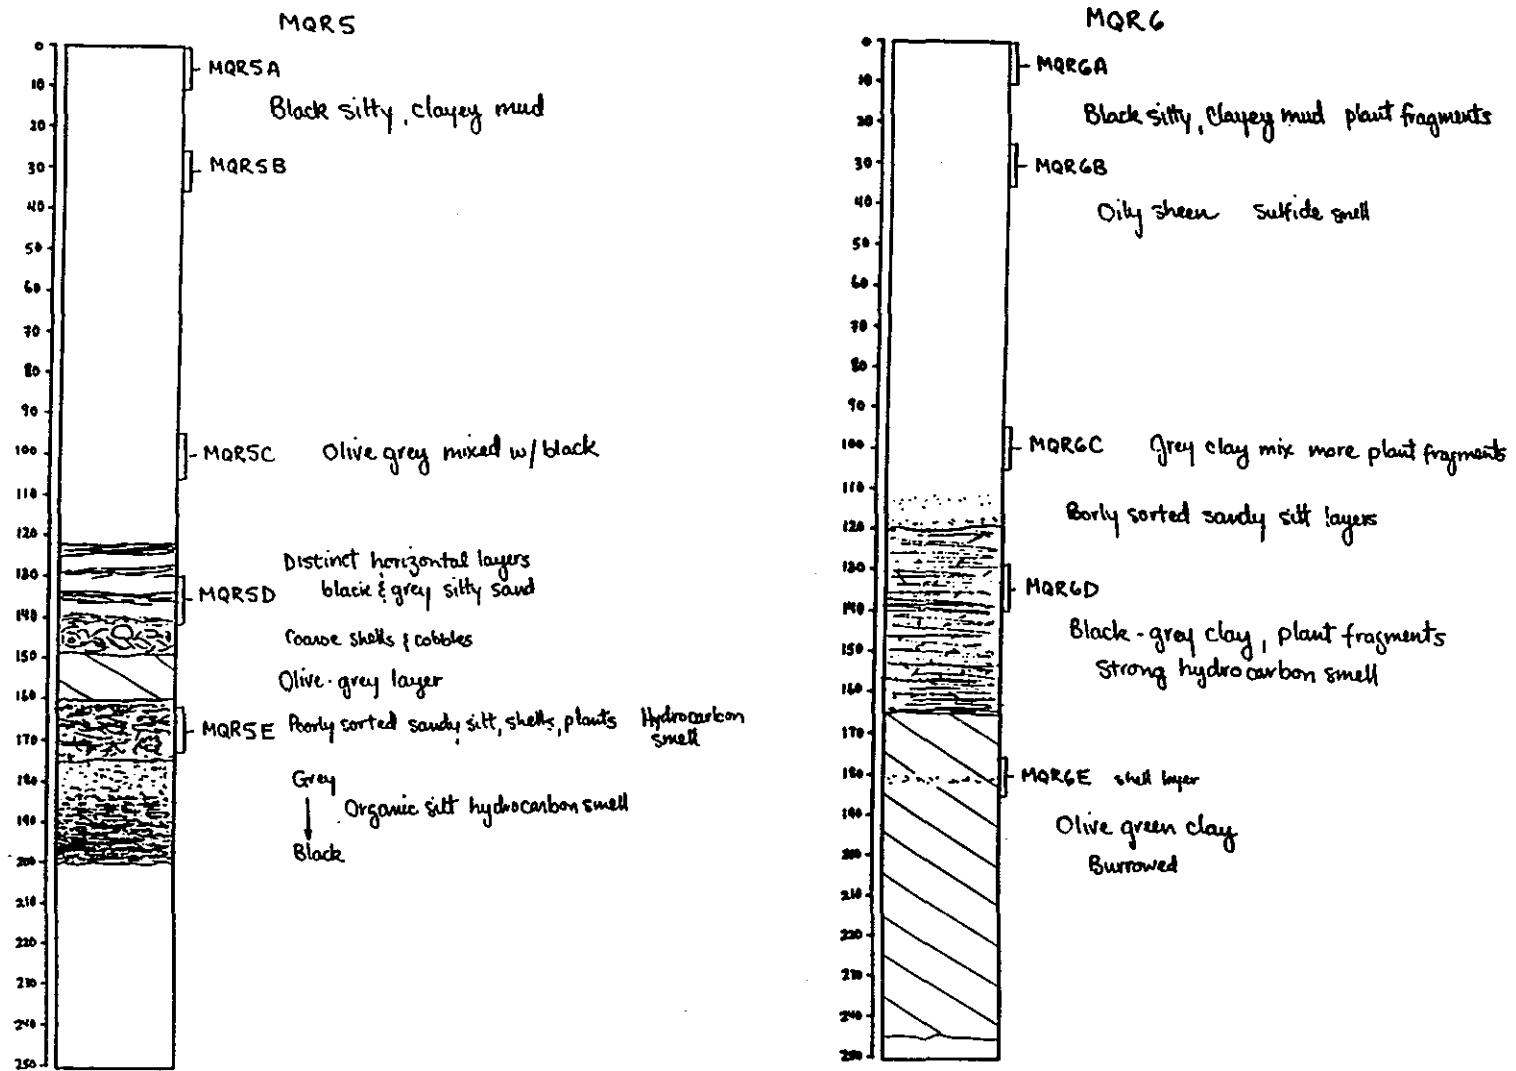 MQR5
0
10
20
30
40
50
60
70
80
90
100
110
120
130
140
150
160
170
180
190
200
210
220
230
240
250
MQR5A
Black silty, clayey mud
MQR5B
MQR5C Olive grey mixed w/black
Distinct horizontal layers
black & grey silty sand
MQR5D
Coarse shells & cobbles
Olive-grey layer
MQR5E Poorly sorted sandy silt, shells, plants Hydrocarbon
smell
Grey
Organic silt hydrocarbon smell
Black
MQR6
0
10
20
30
40
50
60
70
80
90
100
110
120
130
140
150
160
170
180
190
200
210
220
230
240
250
MQR6A
Black silty, clayey mud plant fragments
MQR6B
Oily sheen Sulfide smell
MQR6C Grey clay mix more plant fragments
Poorly sorted sandy silt layers
MQR6D
Black-grey clay, plant fragments
Strong hydrocarbon smell
MQR6E shell layer
Olive green clay
Burrowed